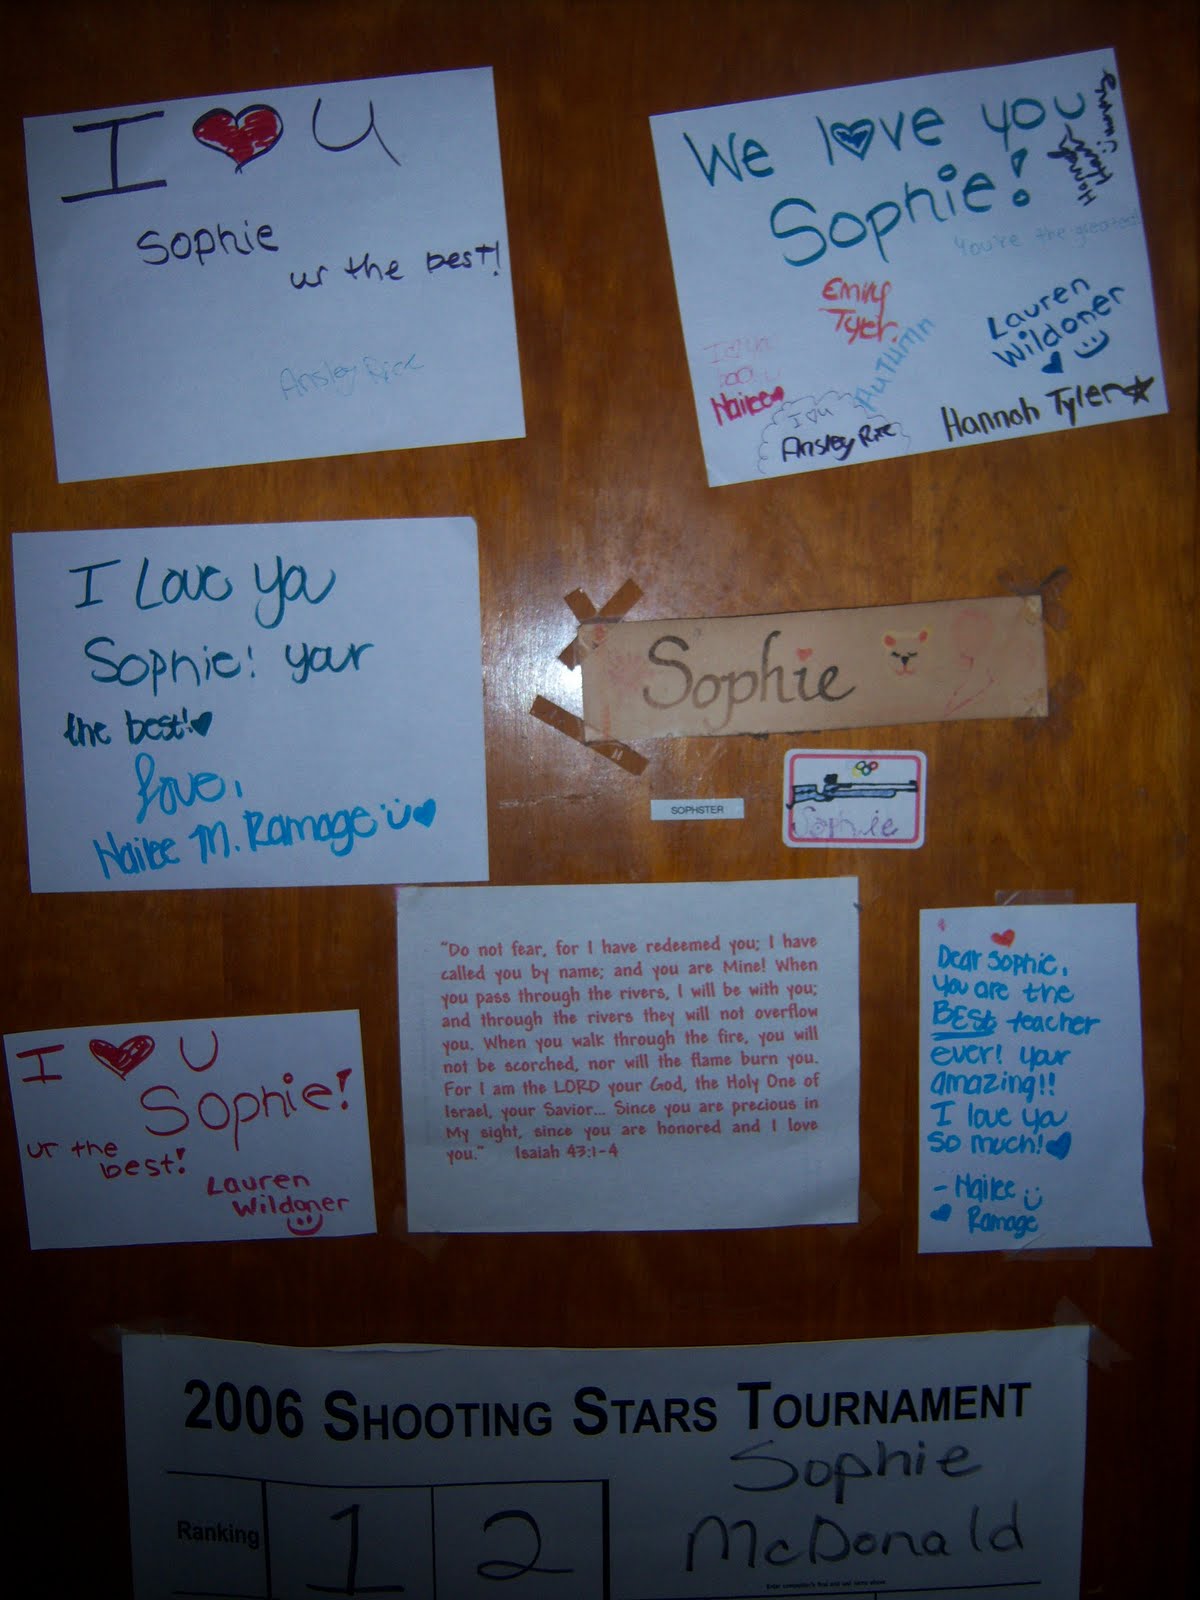 I ❤ U
Sophie
ur the best!
Ansley Rice
We love you
Sophie!
You're the greatest!
Emily
Tyler
Lauren
Wildoner
Autumn
Nailee
I ♥ u
Ansley Rice
Hannah Tyler
I Love Ya
Sophie! your
the best!
Love,
Nailee M. Ramage
Sophie
SOPHSTER
Sophie
"Do not fear, for I have redeemed you; I have
called you by name; and you are Mine! When
you pass through the rivers, I will be with you;
and through the rivers they will not overflow
you. When you walk through the fire, you will
not be scorched, nor will the flame burn you.
For I am the LORD your God, the Holy One of
Israel, your Savior... Since you are precious in
My sight, since you are honored and I love
you." Isaiah 43:1-4
Dear Sophie,
You are the
BEST teacher
ever! your
amazing!!
I love ya
so much!
- Nailee
Ramage
I ❤ U
Sophie!
ur the
best!
Lauren
Wildoner
2006 SHOOTING STARS TOURNAMENT
Sophie
McDonald
Ranking 1 2